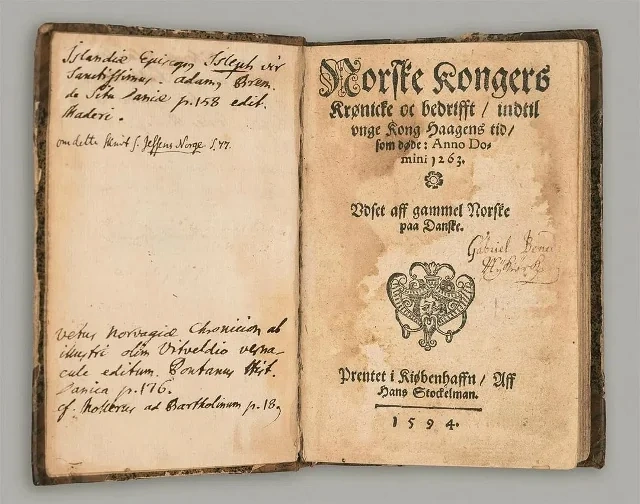 Islandiæ Episcop. Isleph vir
Sanctissimus. Adamg Brem.
de Situ Daniæ p. 158 edit.
Maderi.
om dette Skrift s. Jessens Norge S. 77.
vetus Norvagiæ Chronicion ab
illustri olim Vitveldio verna-
cule editum. Pontanus Hist.
Danica p. 176.
cf. Mollerus ad Bartholinum p. 18
Norske Kongers
Krønicke oc bedrifft / indtil
vnge Kong Haagens tid /
som døde: Anno Do-
mini 1263.
Vdset aff gammel Norske
paa Danske.
Gabriel
Prentet i Kiøbenhaffn / Aff
Hans Stockelman.
1594.